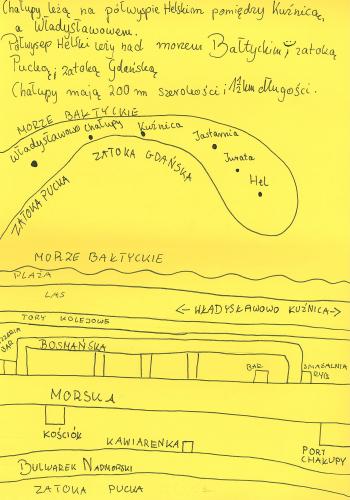 Chałupy leżą na półwyspie Helskim pomiędzy Kuźnicą,
a Władysławowem.
Półwysep Helski leży nad morzem Bałtyckim i zatoką
Pucką i zatoką Gdańską
Chałupy mają 200 m szerokości i 1 1/2 km długości.
MORZE BAŁTYCKIE
Władysławowo Chałupy Kuźnica
Jastarnia
ZATOKA GDAŃSKA
Jurata
Hel
ZATOKA PUCKA
MORZE BAŁTYCKIE
PLAŻA
LAS
<- WŁADYSŁAWOWO KUŹNICA ->
TORY KOLEJOWE
BAR
BOSMAŃSKA
BAR
SMAŻALNIA
RYB
MORSKA
KOŚCIÓŁ
KAWIARENKA
PORT
CHAŁUPY
BULWAREK NADMORSKI
ZATOKA PUCKA